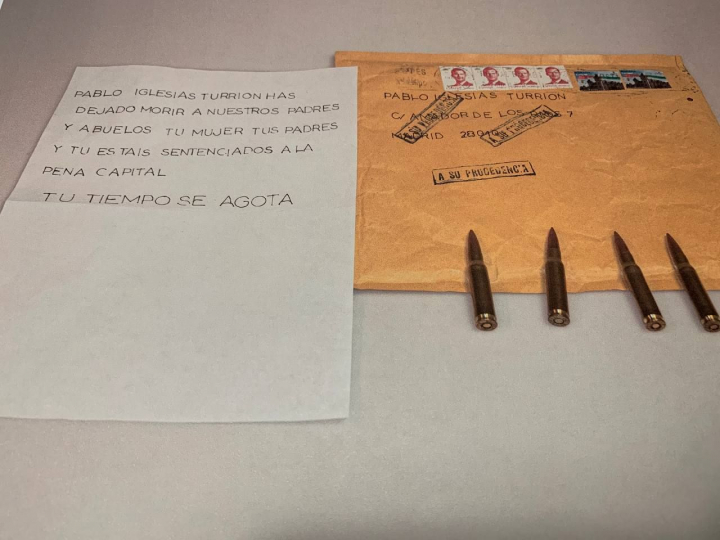 PABLO IGLESIAS TURRION HAS
DEJADO MORIR A NUESTROS PADRES
Y ABUELOS TU MUJER TUS PADRES
Y TU ESTAIS SENTENCIADOS A LA
PENA CAPITAL
TU TIEMPO SE AGOTA
PABLO IGLESIAS TURRION
C/ AMADOR DE LOS 7
MADRID
A SU PRUDECENCIA